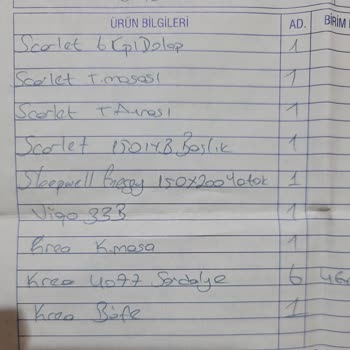 ÜRÜN BİLGİLERİ AD. BİRİM
Scarlet 6 Kpı Dolap 1
Scarlet T.masası 1
Scarlet T Aynası 1
Scarlet 150 Başlık 1
Sleepwell 150x200 Yatak 1
Vigo 33B 1
Kreo K.masa 1
Kreo 4077 Sandalye 6
Kreo Büfe 1